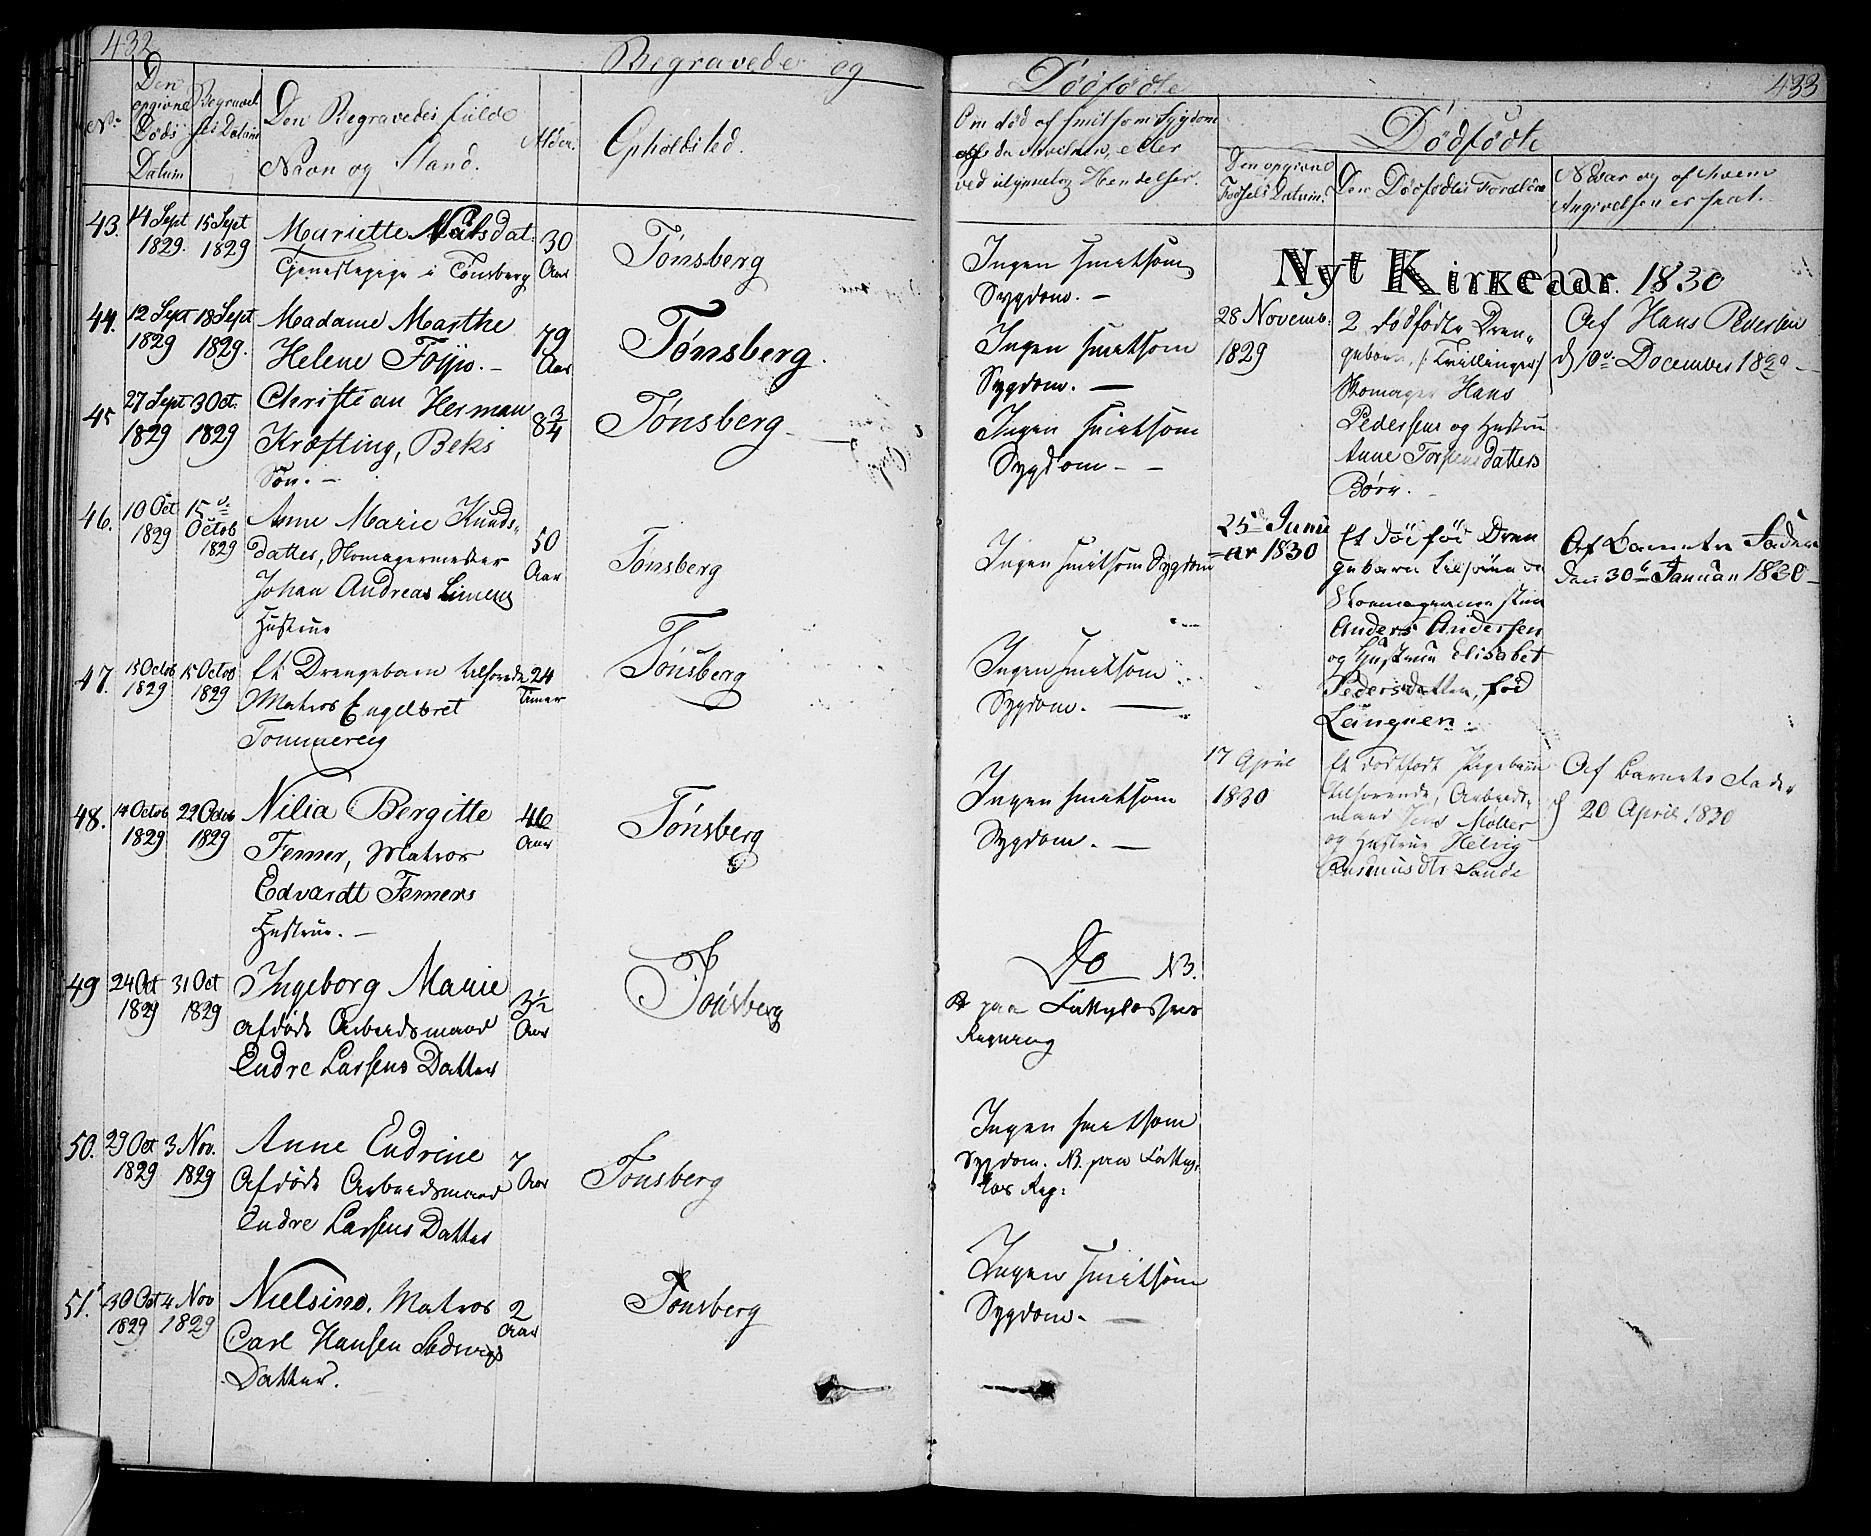 432
Begravede og
No.
Den opgivne Døds Datum
Begravelses Datum
Den Begravedes fulde Navn og Stand.
Alder.
Opholdsted.
43.
14 Sept 1829.
15 Sept 1829
Mariette Nilsdat.
Tjenestepige i Tønsberg
30 Aar
Tønsberg
44.
12 Sept 1829
18 Sept 1829.
Madame Marthe
Helene Foyn. –
79 Aar
Tønsberg.
45
27 Sept 1829
3 Oct. 1829
Christian Herman
Kræfting, Beks
Søn. –
8 3/4
Tønsberg
46.
10 Oct 1829
15de Octob 1829
Anne Marie Knuds-
datter, Skomagermester
Johan Andreas
Hustrue
50 Aar
Tønsberg
47.
15 Octob 1829
15 Octob 1829
Et Drengebarn tilhørende
Matros Engelbret
Tommereig
24 Timer
Tønsberg
48.
14 Octob 1829
22 Octob 1829
Nilia Bergitte
Femer, Matros
Edvardt Femers
Hustrue. –
46 Aar
Tønsberg
49
24 Oct 1829
31 Oct 1829
Ingeborg Marie
afdøde Arbeidsmand
Endre Larsens Datter
3½ Aar
Tønsberg
50.
29 Oct 1829
3 Nov. 1829
Anne Endrine
Afdøde Arbeidsmand
Endre Larsens Datter
7 Aar
Tønsberg
51.
30 Oct 1829
4 Nov 1829
Nielsine. Matros
Carl Hansen
Datter.
2 Aar
Tønsberg
433
Dødfødte
Om død af smitsom Sygdom
ved ulykkelig Hendelser.
Dødfødte
Den opgivne Fødsels Datum.
Den Dødfødtes Forældre
Naar og af hvem
Angivelsen er skeet.
Ingen smitsom
Sygdom. –
Ingen smitsom
Sygdom. –
Ingen smitsom
Sygdom – –
Ingen smitsom Sygdom
Ingen smitsom
Sygdom. –
Ingen smitsom
Sygdom. –
Do NB.
paa Fattigkassens
Regning
Ingen smitsom
Sygdom. NB. paa Fattig-
kas Reg:
Ingen smitsom
Sygdom. –
Nyt Kirkeaar. 1830
28 Novemb. 1829
2 dødfødte Dren-
gebørn, /: Tvillinger /
Skomager Hans
Pedersens og Hustrue
Anne Torstensdatters
Børn. –
Af Hans Pedersen
d 10de December 1829 –
25d Janu-
ar 1830
Et død fød Dren
gebarn tilhørende
Skomagermesteren
Anders Andersen
og Hustrue Elisabet
Pedersdatter, fød
Langnen.
Af Barnets Fader
den 30te Januari 1830 –
17 April 1830
Et dødfødt Pigebarn
tilhørende, Arbeids-
mand Jens Møller
og Hustrue Helvig
Rasmusdtr Sande
Af Barnets Fader
d 20 April 1830